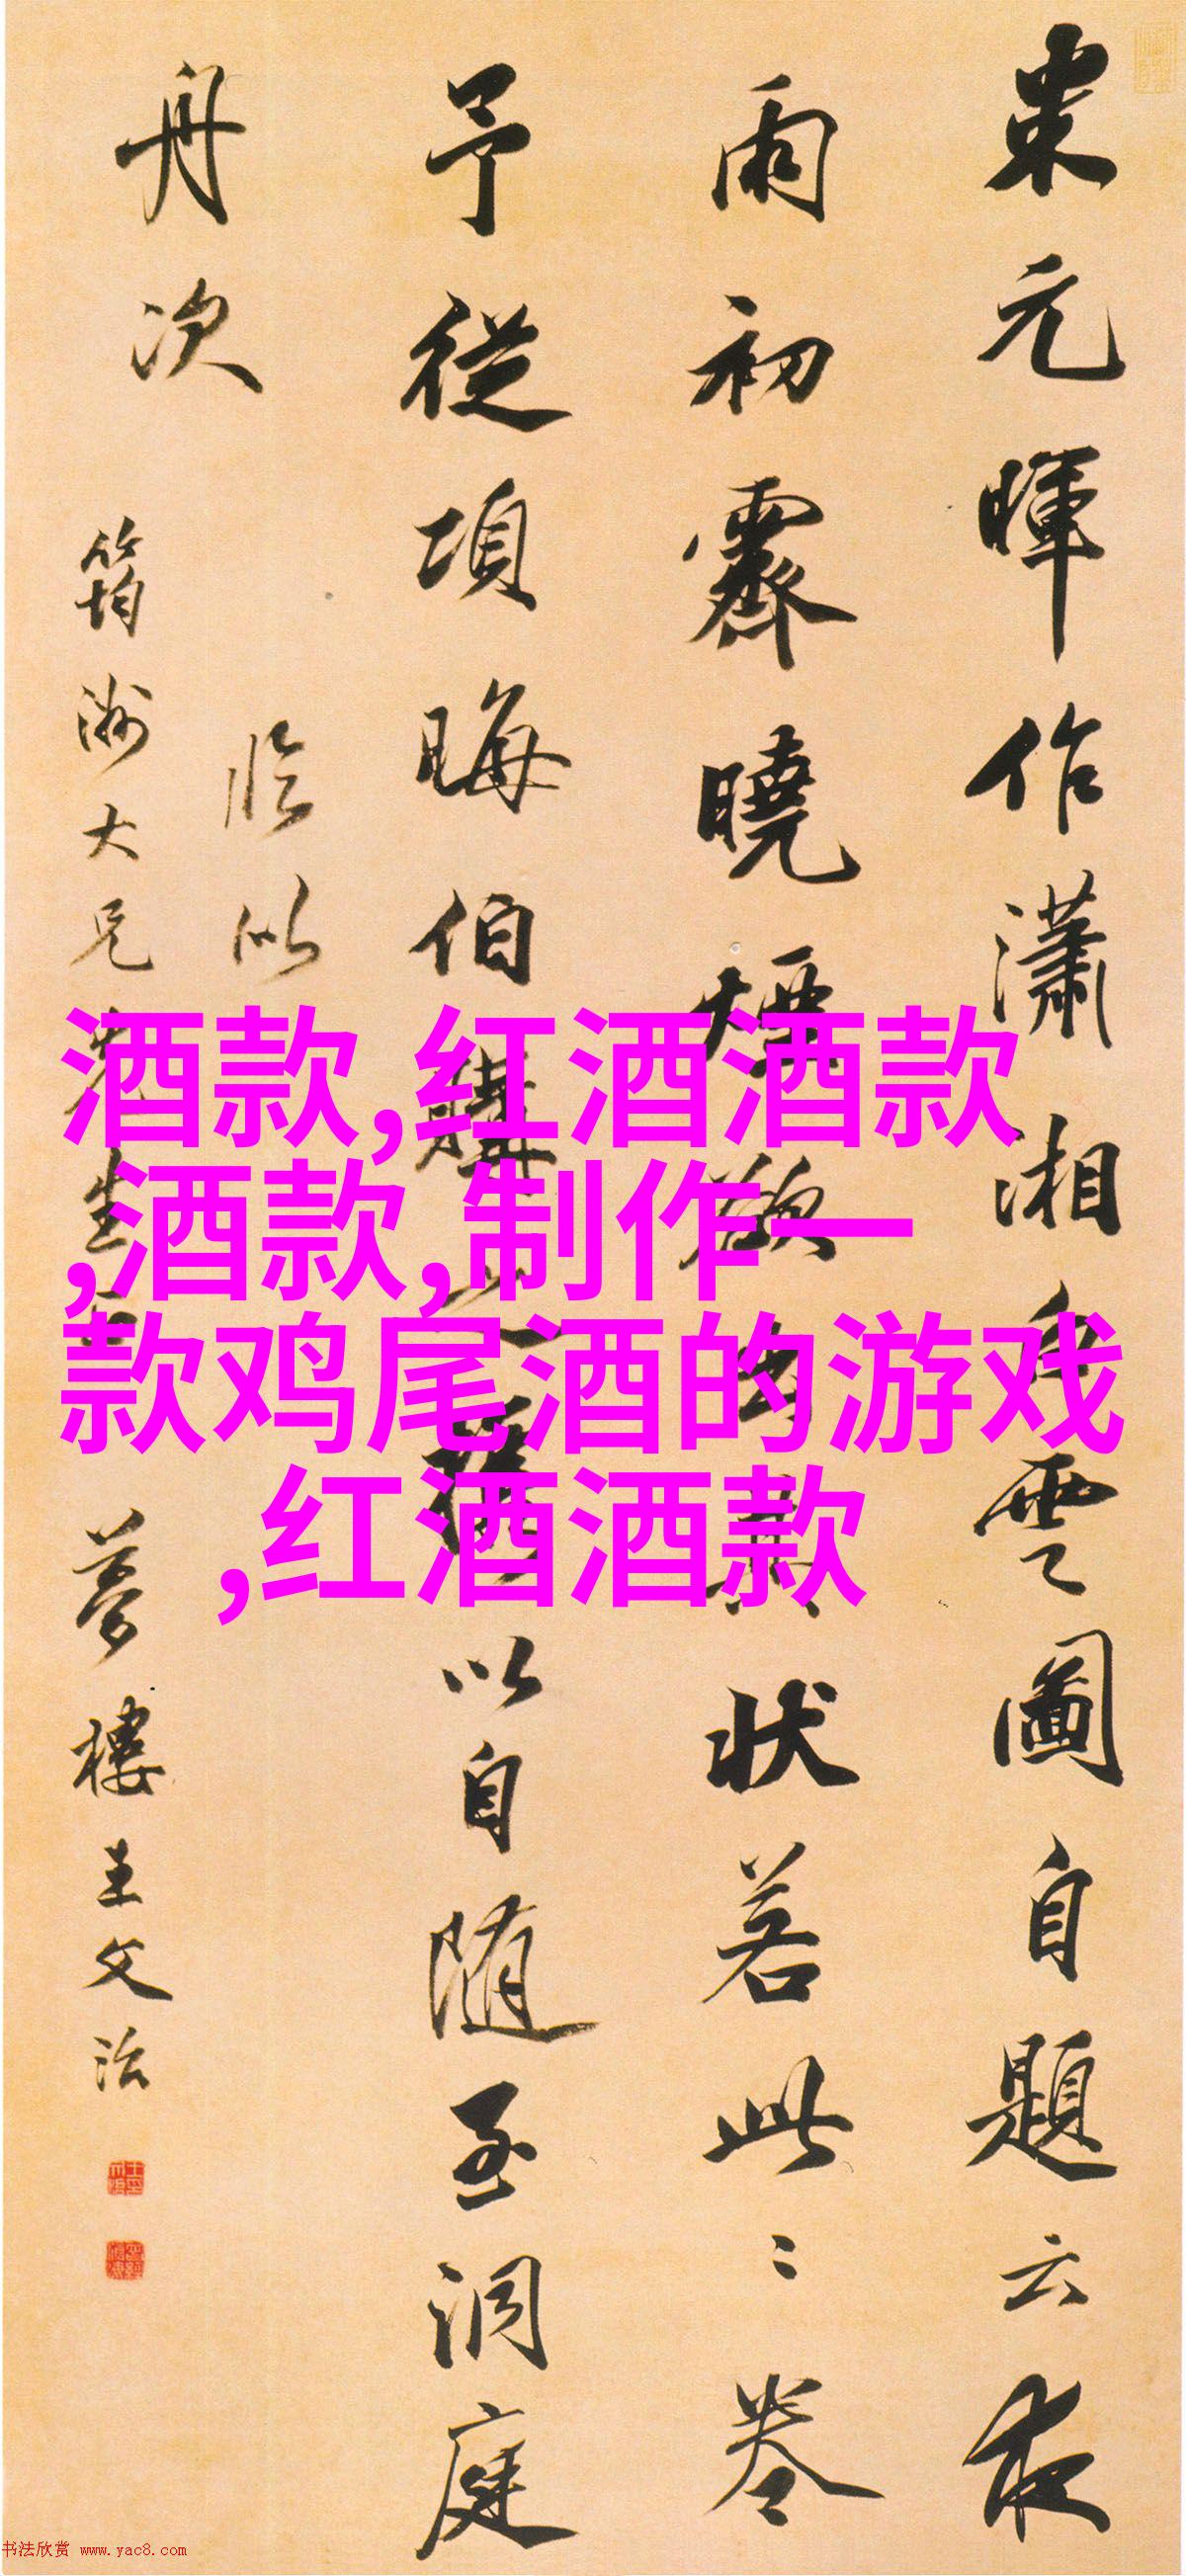 米元暉作瀟湘白雲圖自題云夜
雨初霽曉煙欲出其狀若此〻卷
予從項晦伯購之攜以自隨至洞庭
舟次
臨以
筠洲大兄先生
夢樓王文治
酒款,红酒酒款
,酒款,制作一
款鸡尾酒的游戏
,红酒酒款
书法欣赏 www.yac8.com